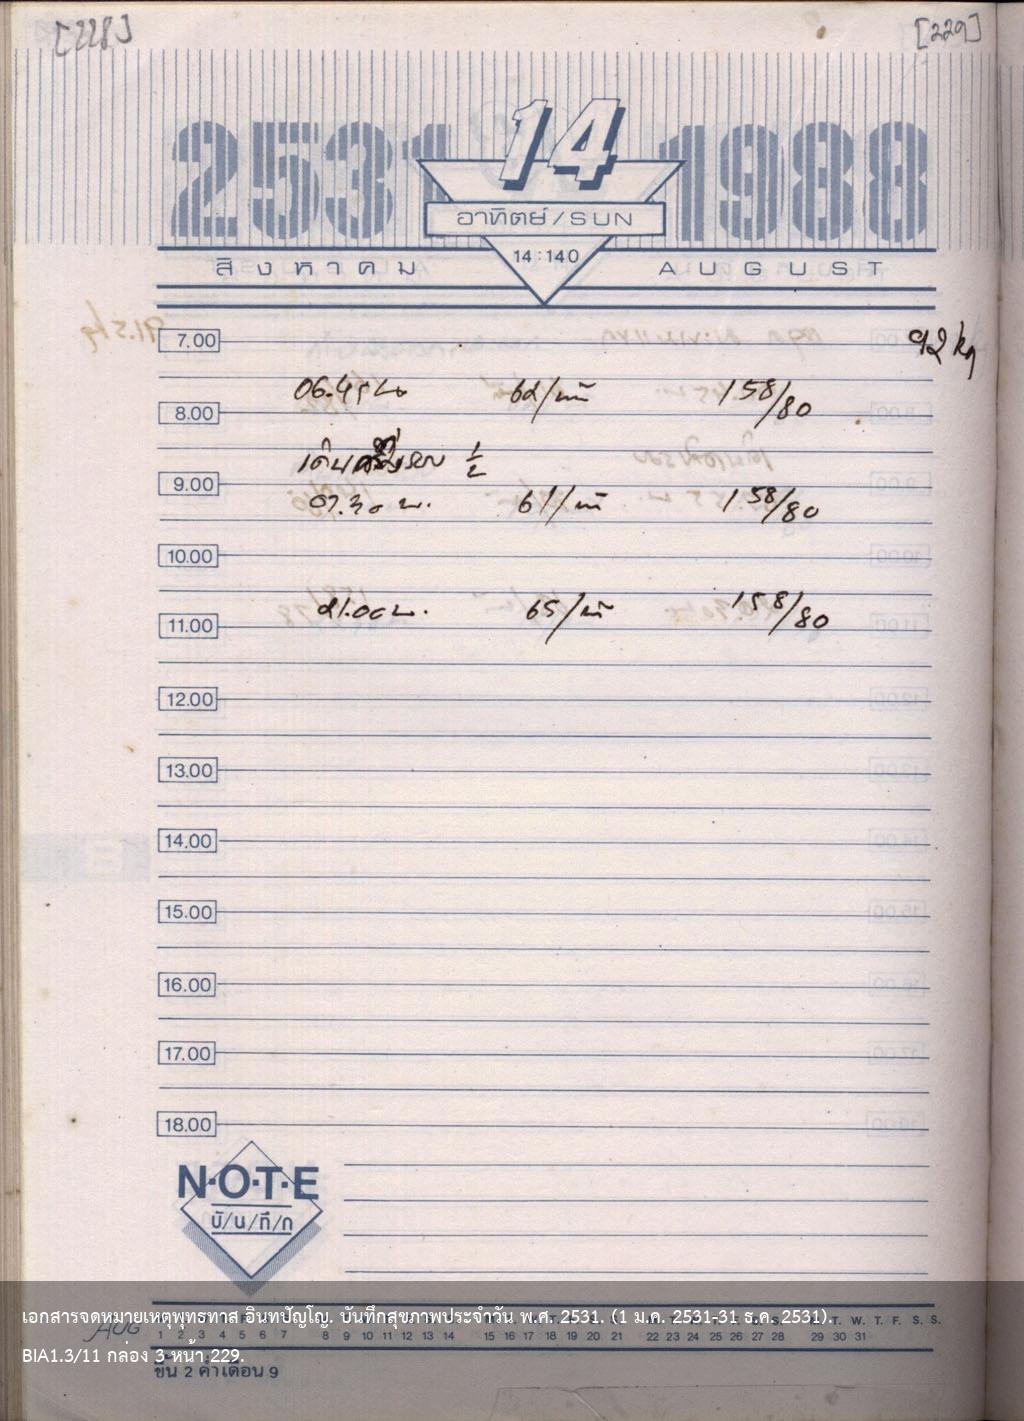 [228]
[229]
2531 14 1988
อาทิตย์/SUN
14:140
สิงหาคม AUGUST
7.00
92 kg
06.45 น 62/นาที 158/80
8.00
เดิน รอบ 1/2
9.00
07.30 น. 61/นาที 158/80
10.00
21.00 น. 65/นาที 158/80
11.00
12.00
13.00
14.00
15.00
16.00
17.00
18.00
N·O·T·E
บั/น/ทึ/ก
เอกสารจดหมายเหตุพุทธทาส อินทปัญโญ. บันทึกสุขภาพประจำวัน พ.ศ. 2531. (1 ม.ค. 2531-31 ธ.ค. 2531).
AUG 1 2 3 4 5 6 7 8 9 10 11 12 13 14 15 16 17 18 19 20 21 22 23 24 25 26 27 28 29 30 31
BIA1.3/11 กล่อง 3 หน้า 229.
ขึ้น 2 ค่ำ เดือน 9